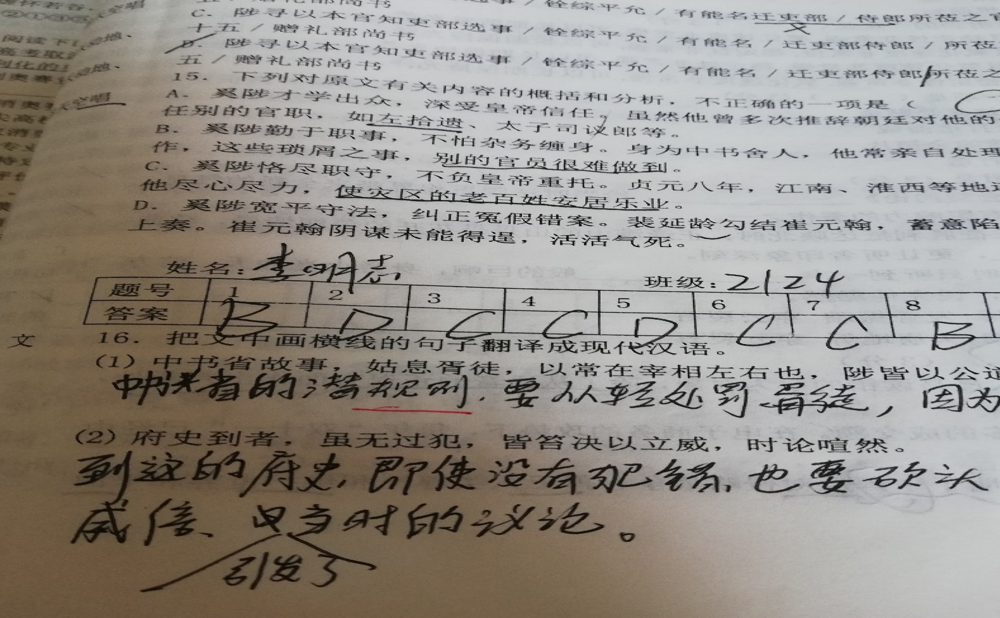 C. 陟寻以本官知吏部选事/铨综平允/有能名迁吏部/侍郎所莅之官
十五/赠礼部尚书
D. 陟寻以本官知吏部选事/铨综平允/有能名/迁吏部侍郎/所莅之
五/赠礼部尚书
15. 下列对原文有关内容的概括和分析，不正确的一项是（ C
A. 奚陟才学出众，深受皇帝信任。虽然他曾多次推辞朝廷对他的
任别的官职，如左拾遗、太子司议郎等。
B. 奚陟勤于职事，不怕杂务缠身。身为中书舍人，他常亲自处理
作，这些琐屑之事，别的官员很难做到。
C. 奚陟恪尽职守，不负皇帝重托。贞元八年，江南、淮西等地
他尽心尽力，使灾区的老百姓安居乐业。
D. 奚陟宽平守法，纠正冤假错案。裴延龄勾结崔元翰，蓄意陷
上奏。崔元翰阴谋未能得逞，活活气死。
姓名：李明志 班级：2124
题号 1 2 3 4 5 6 7 8
答案 B D C C D C C B
文 16. 把文中画横线的句子翻译成现代汉语。
(1) 中书省故事，姑息胥徒，以常在宰相左右也，陟皆以公道
中书省的潜规则，要从轻处罚胥徒，因为
(2) 府史到者，虽无过犯，皆笞决以立威，时论喧然。
到这的府史，即使没有犯错，也要砍头
威信、 当时的议论。
引发了